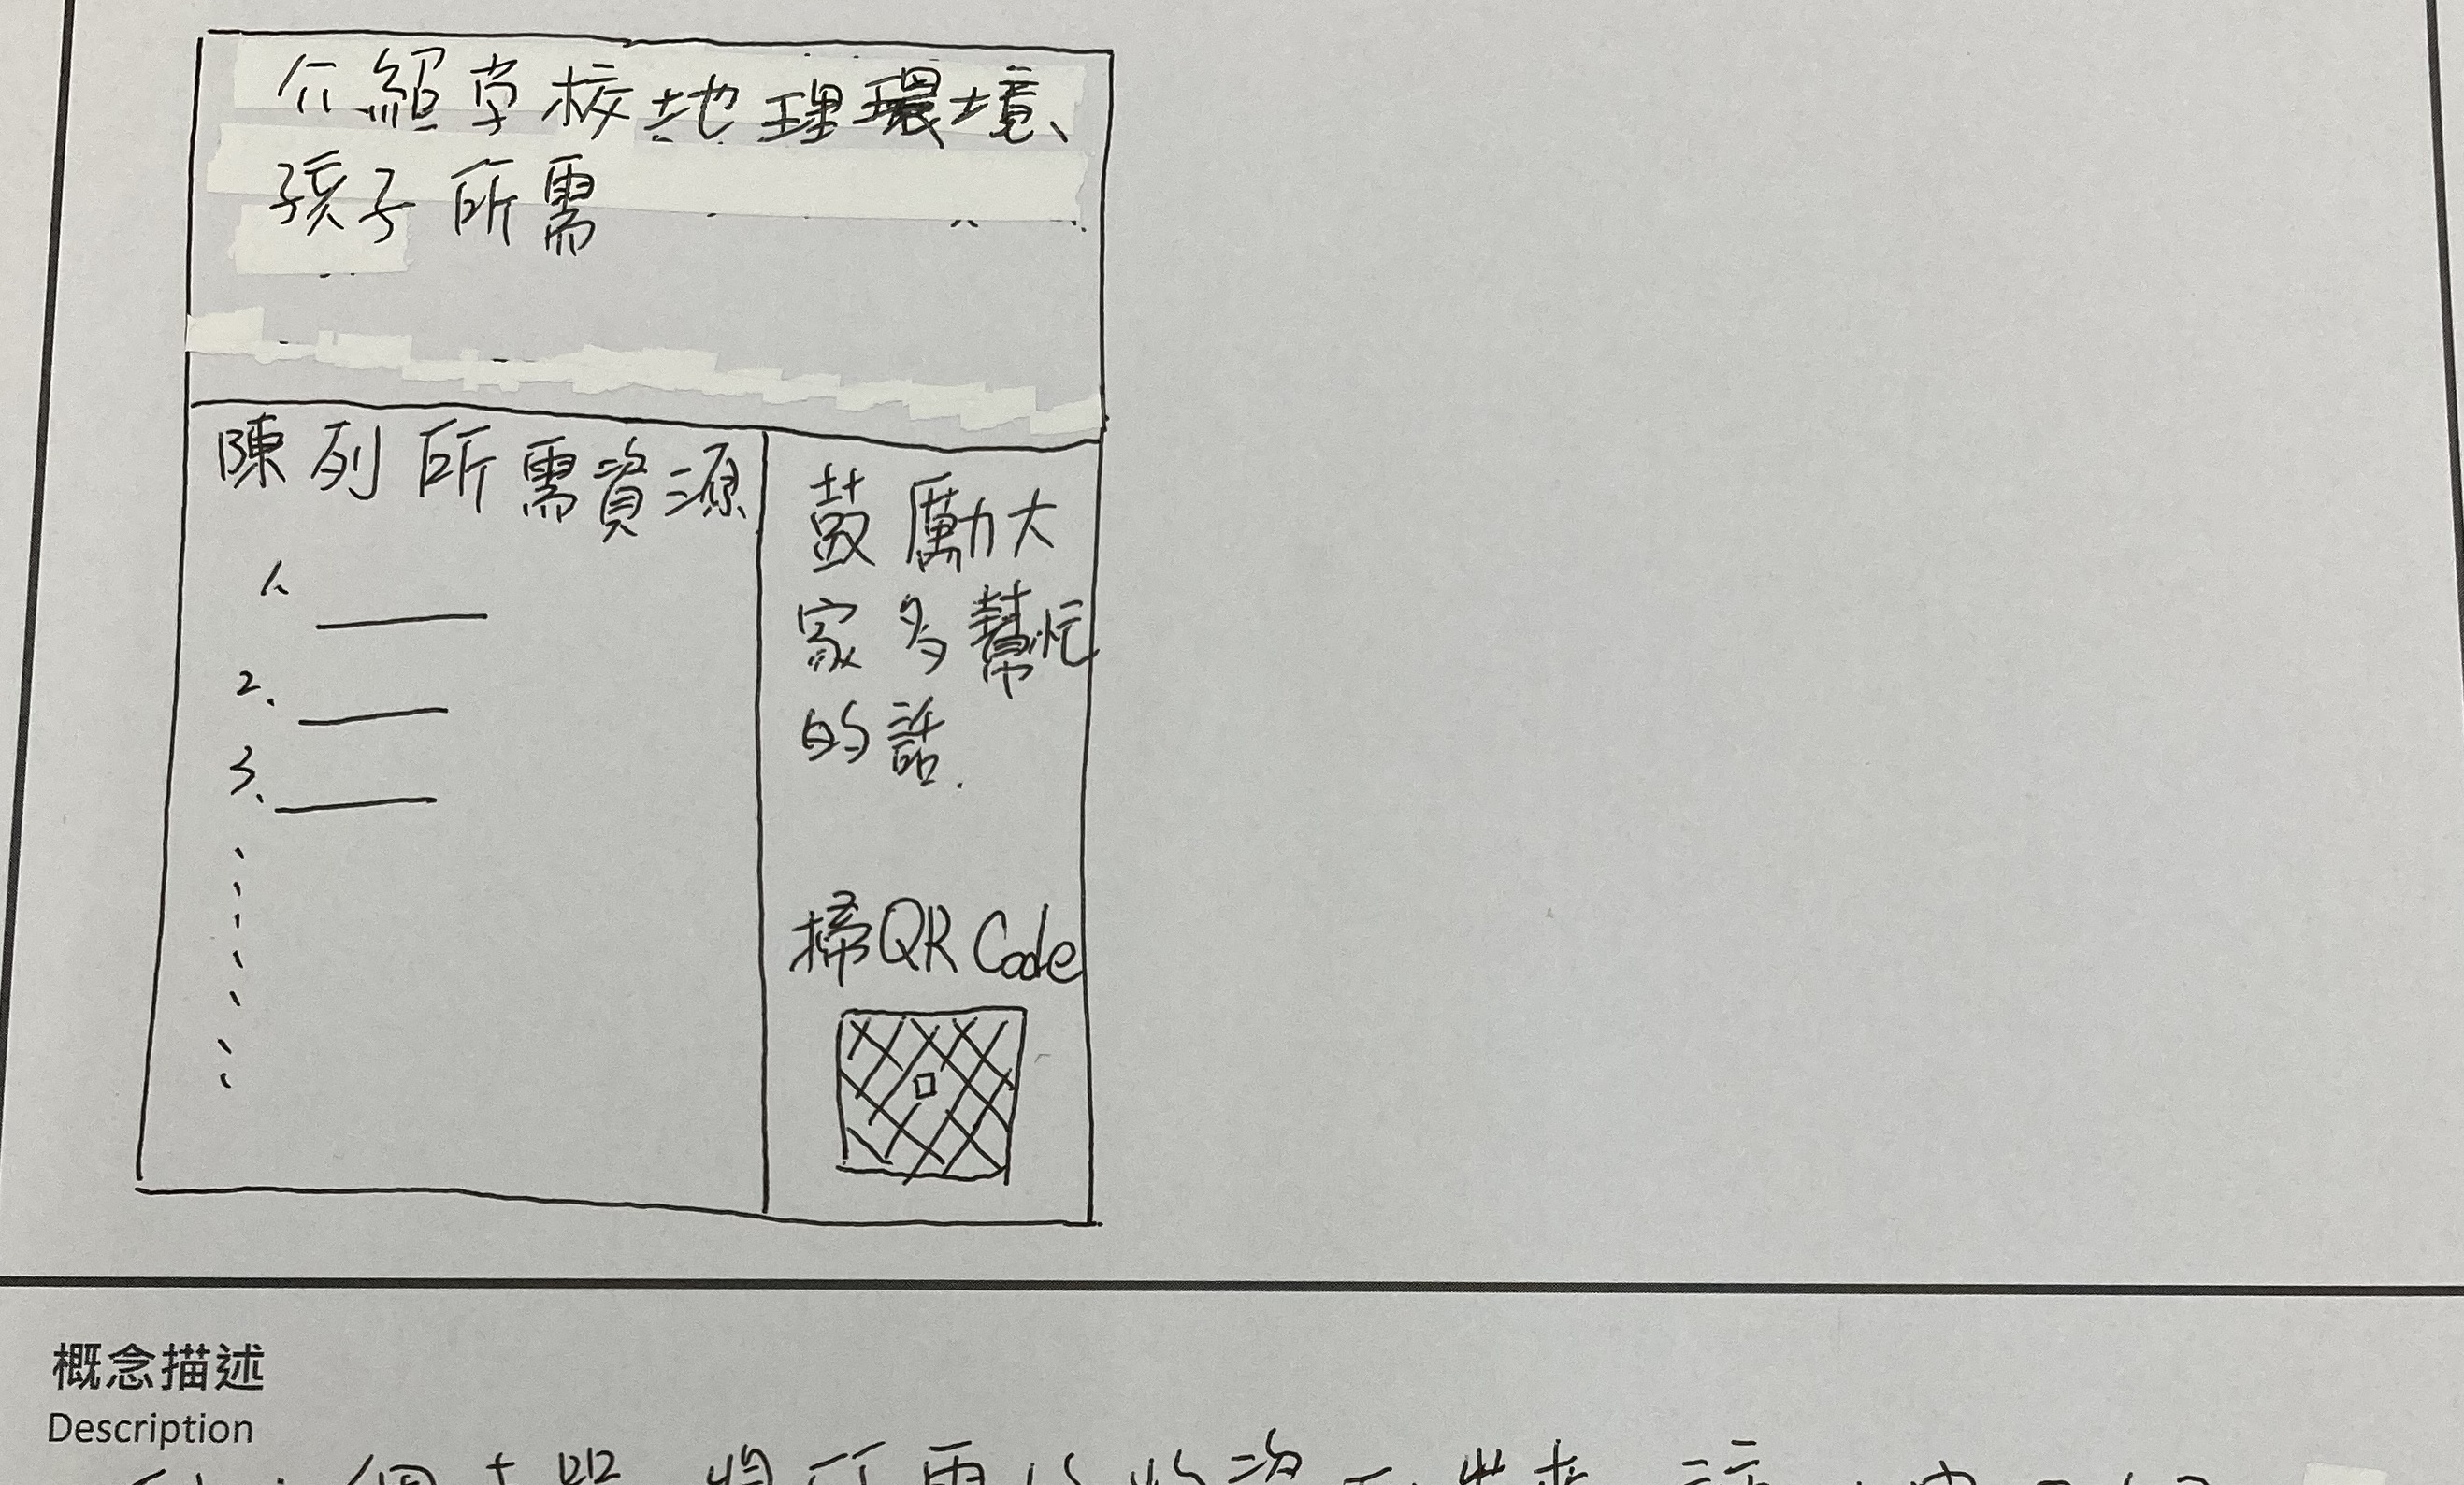 介紹学校地理環境、
孩子所需
陳列所需資源
1.
2.
3.
鼓勵大
家多幫忙
的話.
掃QR Code
概念描述
Description